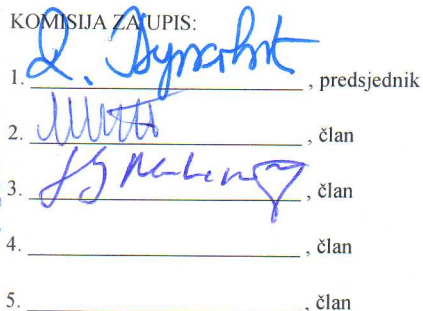 KOMISIJA ZA UPIS:
1. , predsjednik
2. , član
3. , član
4. , član
5. , član